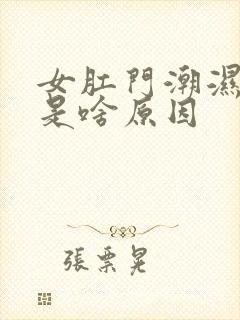 女肛門潮濕
是啥原因
張票晃